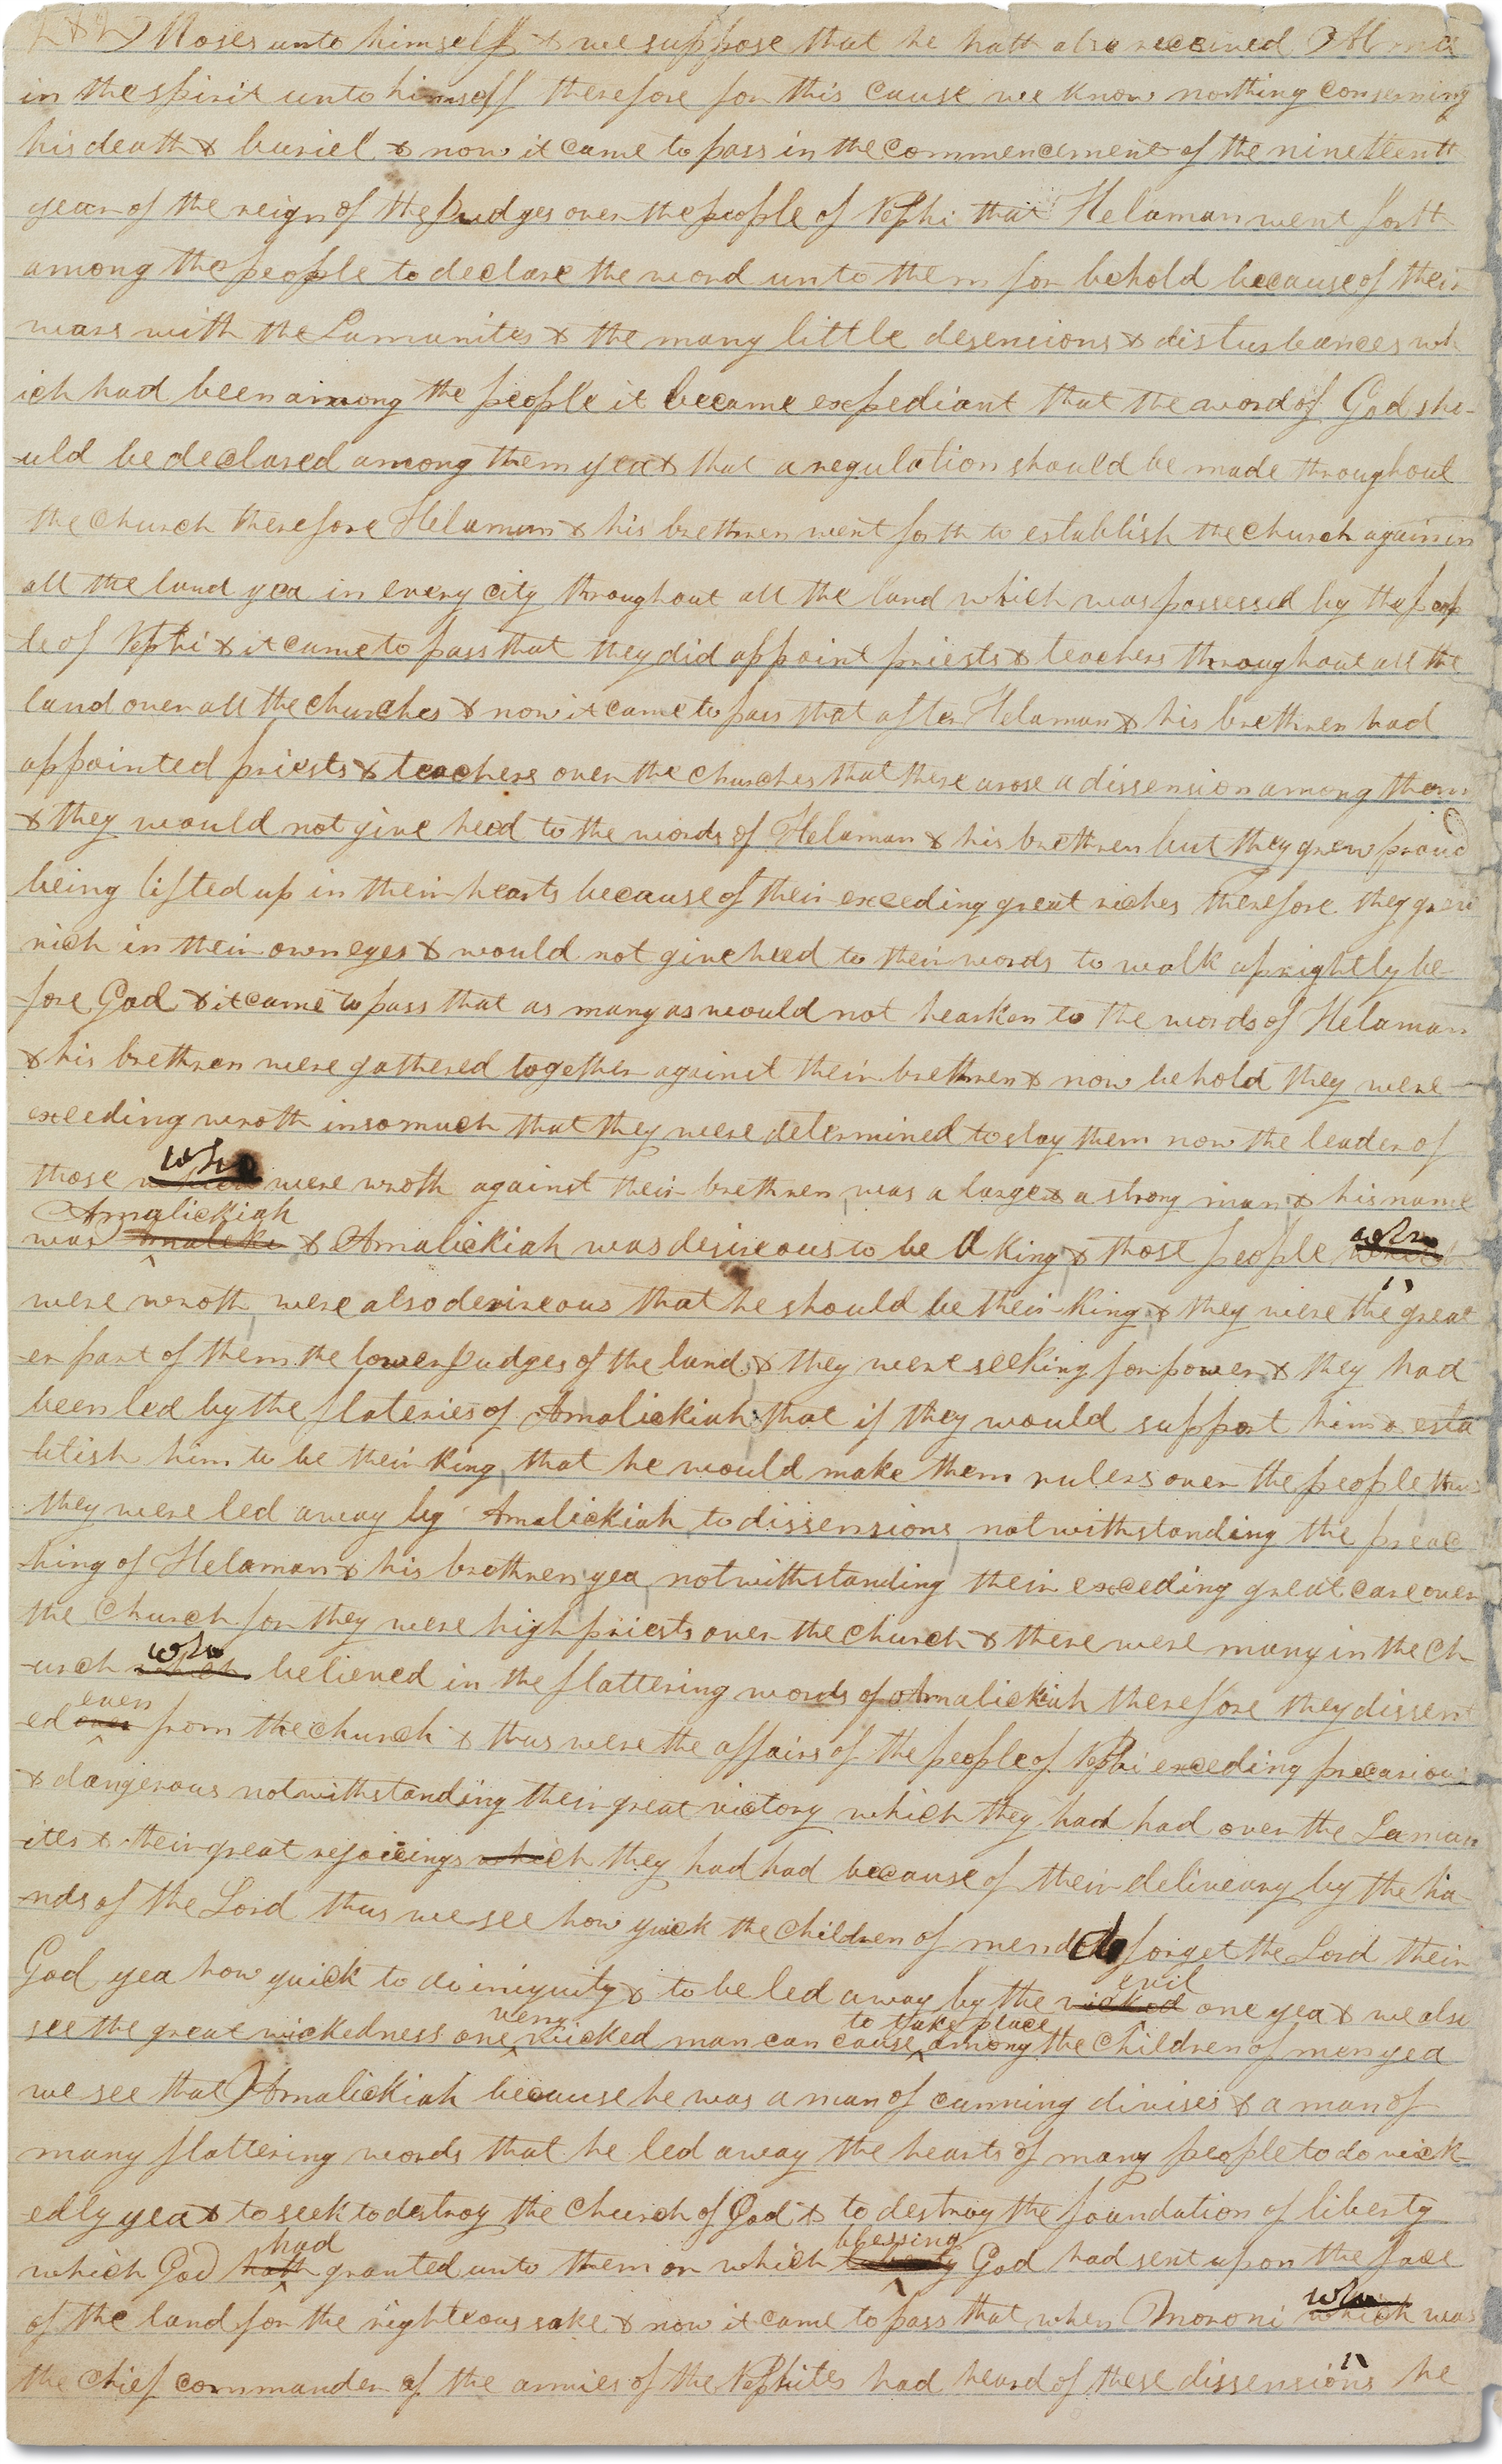 Moses unto himself & we suppose that he hath also received Alma
in the spirit unto himself therefore for this cause we know nothing conserning
his death & buriel & now it came to pass in the commencement of the nineteenth
year of the reign of the Judges over the people of Nephi that Helaman went forth
among the people to declare the word unto them for behold because of their
wars with the Lamanites & the many little desensions & disturbances wh
ich had been among the people it became expediant that the word of God sho-
-uld be declared among them yea & that a regulation should be made throughout
the church therefore Helaman & his brethren went forth to establish the church again in
all the land yea in every city throughout all the land which was possessed by the peop
le of Nephi & it came to pass that they did appoint priests & teachers throughout all the
land over all the churches & now it came to pass that after Helaman & his brethren had
appointed priests & teachers over the churches that there arose a dissension among them
& they would not give heed to the words of Helaman & his brethren but they grew proud
being lifted up in their hearts because of their exceeding great riches therefore they grew
rich in their own eyes & would not give heed to their words to walk uprightly be-
-fore God & it came to pass that as many as would not hearken to the words of Helaman
& his brethren were gathered together against their brethren & now behold they were
exeeding wroth insomuch that they were determined to slay them now the leader of
who
those which were wroth against their brethren was a large & a strong man & his name
Amalickiah
was & Amalickiah was desireous to be a king & those people who
were wroth were also desireous that he should be their king & they were the great
-er part of them the lower Judges of the land & they were seeking for power & they had
been led by the flateries of Amalickiah that if they would support him & esta
blish him to be their king that he would make them rulers over the people thus
they were led away by Amalickiah to dissensions notwithstanding the preac
-hing of Helaman & his brethren yea notwithstanding their exceding great care over
the church for they were high priests over the church & there were many in the ch
who
-urch which believed in the flattering words of Amalickiah therefore they dissent
even
-ed over from the church & thus were the affairs of the people of Nephi exceding precarious
& dangerous notwithstanding their great victory which they had had over the Laman
-ites & their great rejoicings which they had had because of their delivery by the ha-
-nds of the Lord thus we see how quick the children of men do forget the Lord their
evil
God yea how quick to do iniquity & to be led away by the wicked one yea & we also
very to take place
see the great wickedness one wicked man can cause among the children of men yea
we see that Amalickiah because he was a man of cunning divises & a man of
many flattering words that he led away the hearts of many people to do wick-
edly yea & to seek to destroy the church of God & to destroy the foundation of liberty
had blessing
which God hath granted unto them or which God had sent upon the face
who
of the land for the righteous sake & now it came to pass that when Moroni which was
the chief commander of the armies of the Nephites had heard of these dissensions he